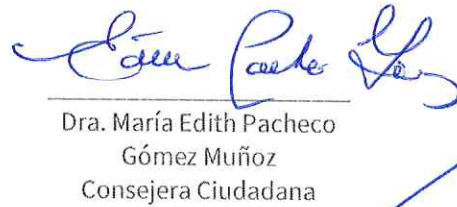 Dra. María Edith Pacheco
Gómez Muñoz
Consejera Ciudadana